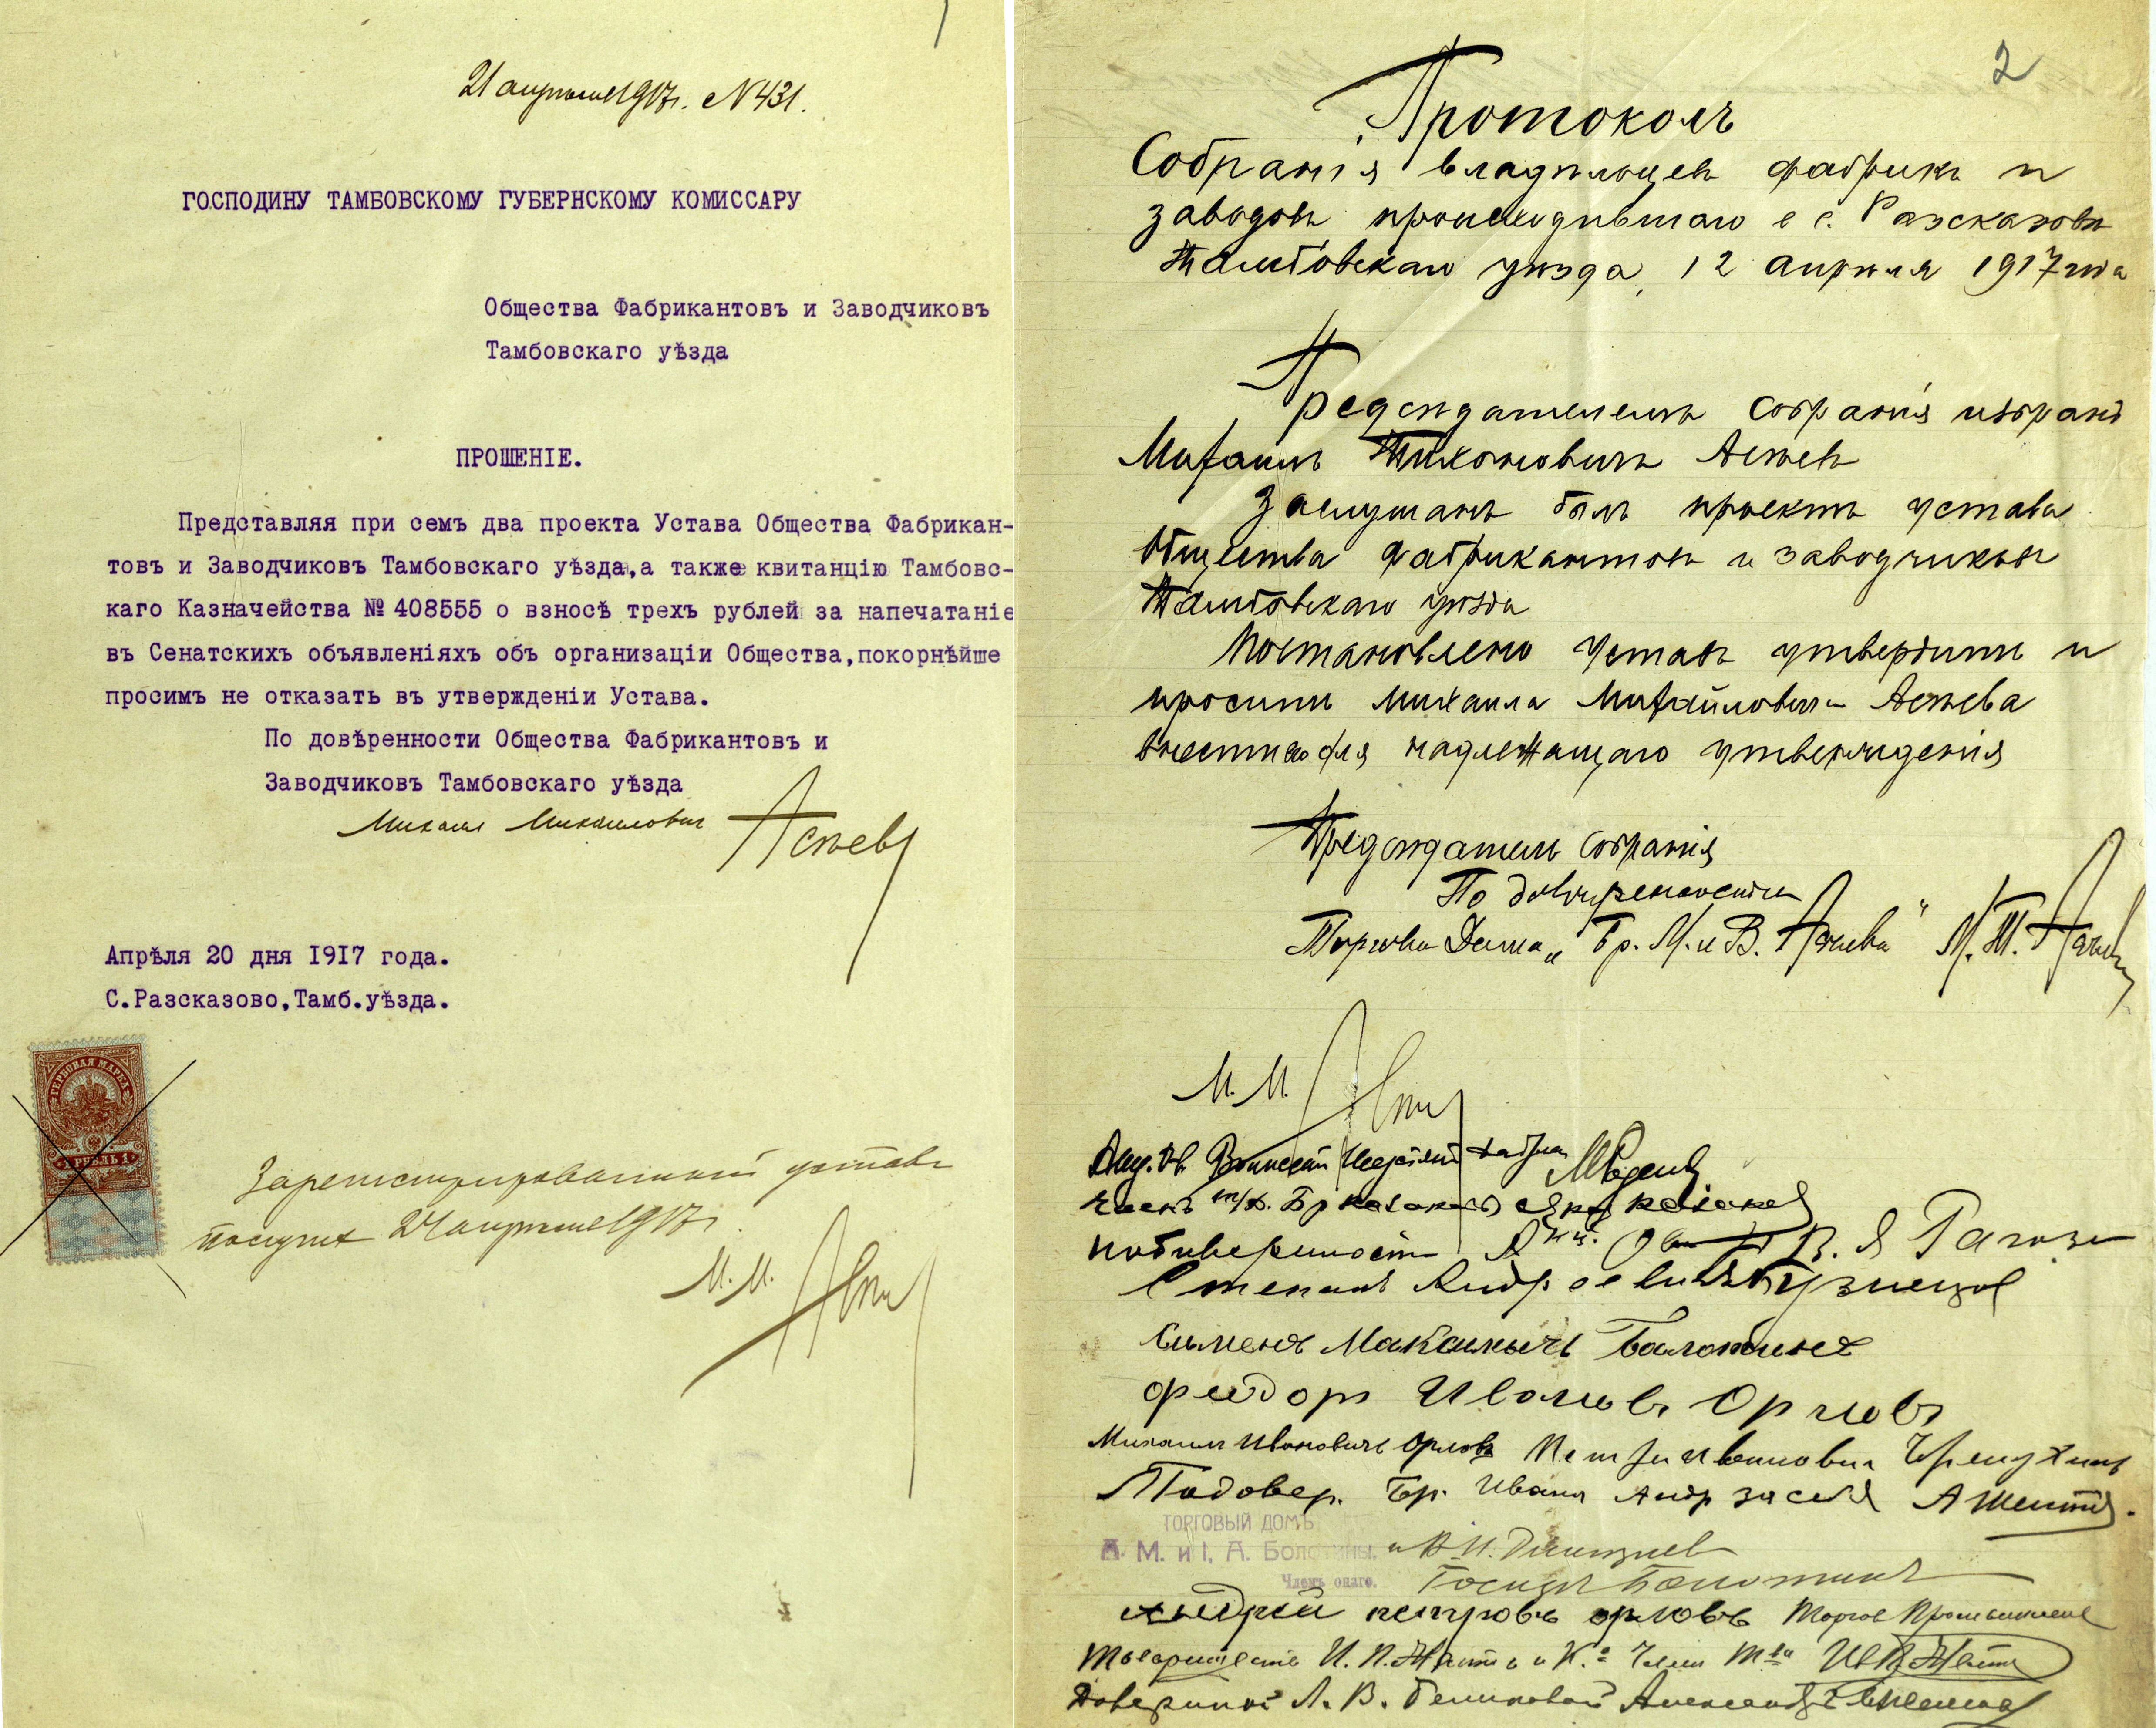 21 апреля 1917г. N431.
ГОСПОДИНУ ТАМБОВСКОМУ ГУБЕРНСКОМУ КОМИССАРУ
Общества Фабрикантовъ и Заводчиковъ
Тамбовскаго уѣзда
ПРОШЕНІЕ.
Представляя при семъ два проекта Устава Общества Фабрикан-
товъ и Заводчиковъ Тамбовскаго уѣзда,а также квитанцію Тамбовс-
каго Казначейства № 408555 о взносѣ трехъ рублей за напечатаніе
въ Сенатскихъ объявленіяхъ объ организаціи Общества,покорнѣйше
просимъ не отказать въ утвержденіи Устава.
По довѣренности Общества Фабрикантовъ и
Заводчиковъ Тамбовскаго уѣзда
Михаил Михайлович Асѣевъ
Апрѣля 20 дня 1917 года.
С.Разсказово,Тамб.уѣзда.
ГЕРБОВАЯ МАРКА
1 РУБЛЬ 1
Зарегистрированный уставъ
получил 24 апреля 1917г.
М.М.
2
Протоколъ
Собранія владѣльцевъ фабрикъ и
заводовъ происходившаго в с. Разсказовѣ
Тамбовскаго уѣзда, 12 апрѣля 1917 года
Предсѣдателемъ Собранія избранъ
Михаилъ Тихоновичъ Асѣевъ
Заслушанъ былъ проектъ устава
Общества фабрикантовъ и заводчиковъ
Тамбовскаго уѣзда
Постановлено Уставъ утвердить и
просить Михаила Михайловича Асѣева
внести его для надлежащаго утвержденія
Предсѣдатель Собранія
По довѣренности
Торгова Дома „Бр. М. и В. Асѣевы" М. Т. Асѣевъ
М.М.
членъ т/д. Бр
В. Я
Степанъ Андреевичъ Кузнецов
Максимычъ
Федоръ Ивановъ Орловъ
Михаилъ Ивановичъ Орловъ Петръ Ивановичъ
По довер. Бр. Ивана Андр за себя А
ТОРГОВЫЙ ДОМЪ
А. М. и І. А. Болотины.
Членъ онаго.
Андрей петровъ орловъ
Товарищество И. П. и Ко
Л. В.